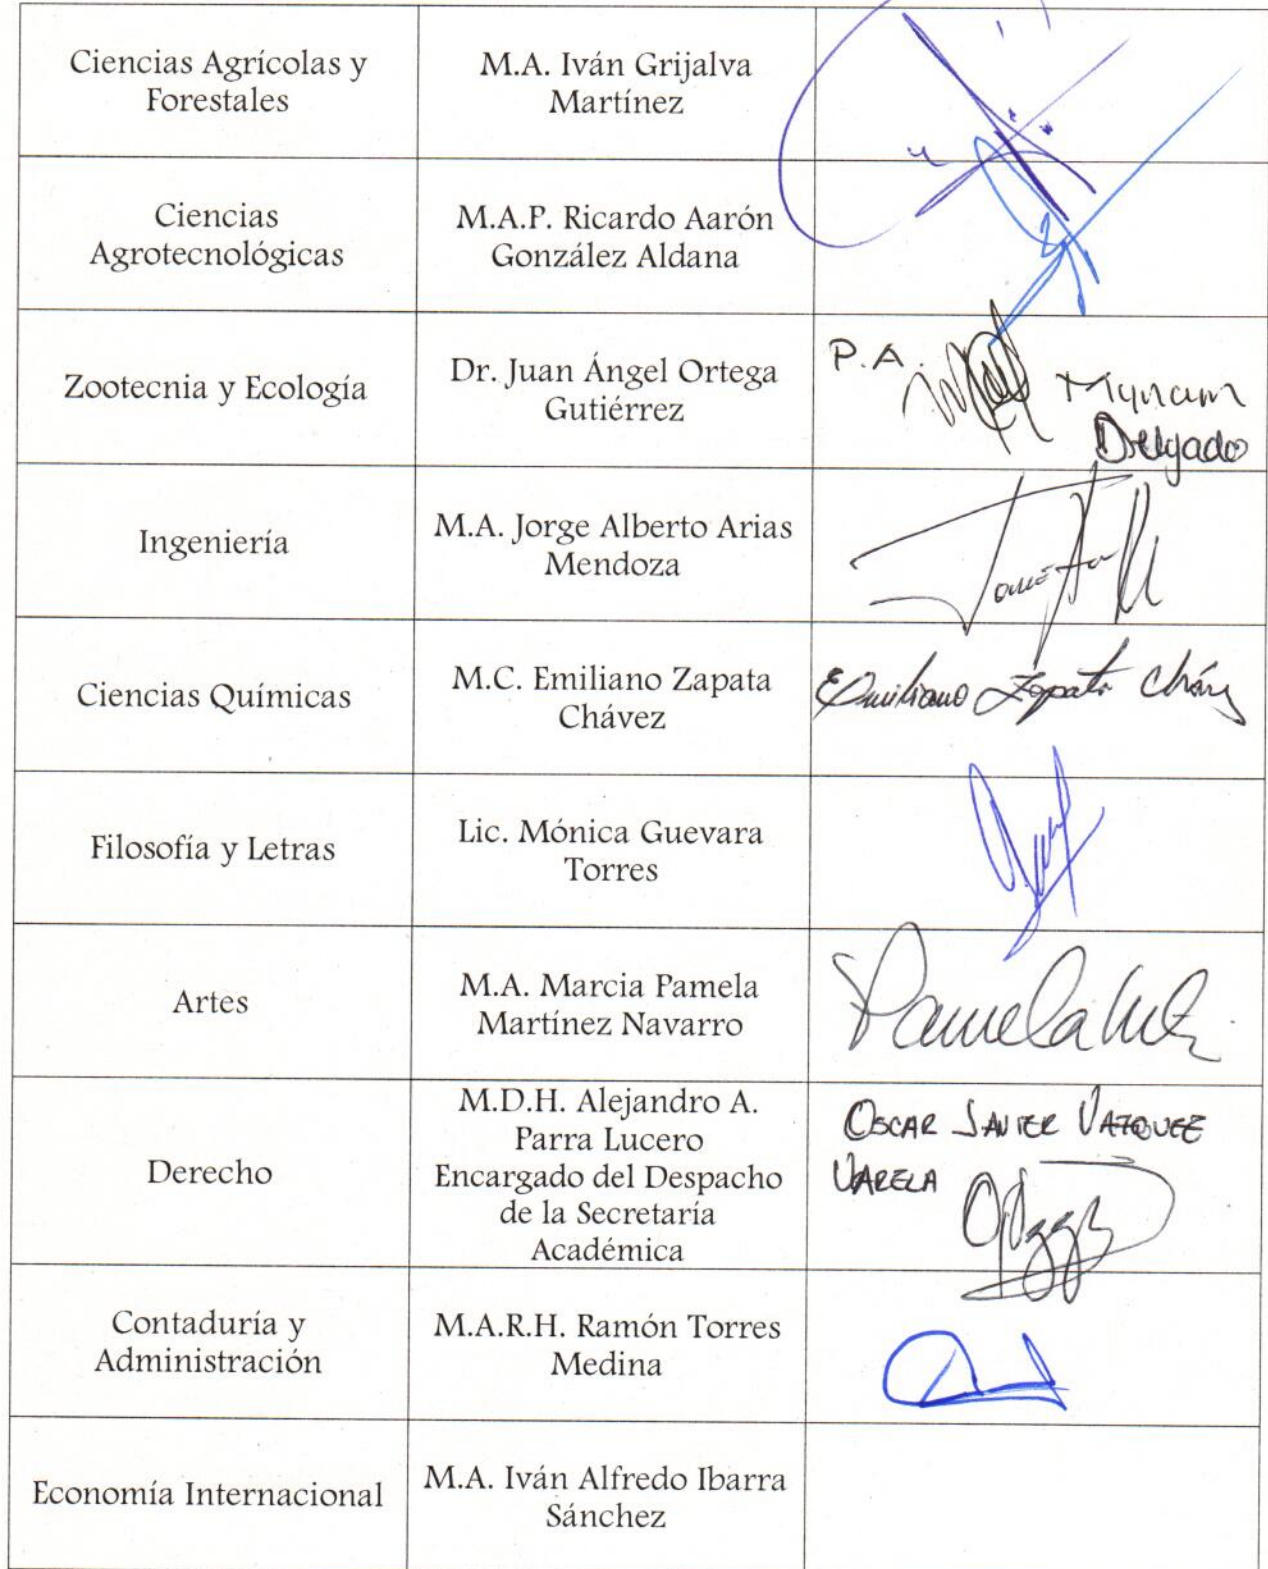 Ciencias Agrícolas y
Forestales
M.A. Iván Grijalva
Martínez
Ciencias
Agrotecnológicas
M.A.P. Ricardo Aarón
González Aldana
Zootecnia y Ecología
Dr. Juan Ángel Ortega
Gutiérrez
P.A.
Myriam
Delgado
Ingeniería
M.A. Jorge Alberto Arias
Mendoza
Ciencias Químicas
M.C. Emiliano Zapata
Chávez
Emiliano Zapata Cháv
Filosofía y Letras
Lic. Mónica Guevara
Torres
Artes
M.A. Marcia Pamela
Martínez Navarro
Pamela
Derecho
M.D.H. Alejandro A.
Parra Lucero
Encargado del Despacho
de la Secretaría
Académica
OSCAR JAVIER VAZQUEZ
VARELA
Contaduría y
Administración
M.A.R.H. Ramón Torres
Medina
Economía Internacional
M.A. Iván Alfredo Ibarra
Sánchez